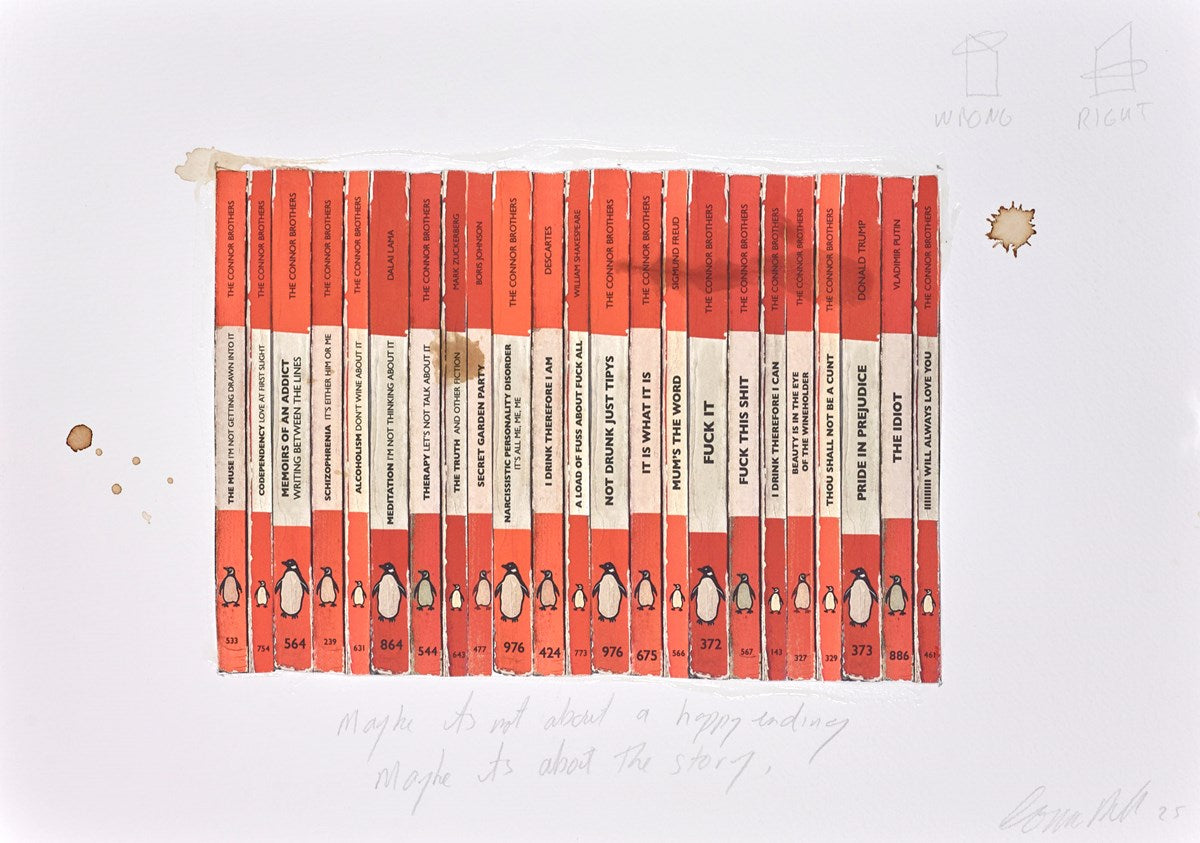 WRONG
RIGHT
THE CONNOR BROTHERS
THE MUSE I'M NOT GETTING DRAWN INTO IT
533
THE CONNOR BROTHERS
CODEPENDENCY LOVE AT FIRST SLIGHT
754
THE CONNOR BROTHERS
MEMOIRS OF AN ADDICT
WRITING BETWEEN THE LINES
564
THE CONNOR BROTHERS
SCHIZOPHRENIA IT'S EITHER HIM OR ME
239
THE CONNOR BROTHERS
ALCOHOLISM DON'T WINE ABOUT IT
631
DALAI LAMA
MEDITATION I'M NOT THINKING ABOUT IT
864
THE CONNOR BROTHERS
THERAPY LET'S NOT TALK ABOUT IT
544
MARK ZUCKERBERG
THE TRUTH AND OTHER FICTION
643
BORIS JOHNSON
SECRET GARDEN PARTY
477
THE CONNOR BROTHERS
NARCISSISTIC PERSONALITY DISORDER
IT'S ALL ME, ME, ME
976
DESCARTES
I DRINK THEREFORE I AM
424
WILLIAM SHAKESPEARE
A LOAD OF FUSS ABOUT FUCK ALL
773
THE CONNOR BROTHERS
NOT DRUNK JUST TIPYS
976
THE CONNOR BROTHERS
IT IS WHAT IT IS
675
SIGMUND FREUD
MUM'S THE WORD
566
THE CONNOR BROTHERS
FUCK IT
372
THE CONNOR BROTHERS
FUCK THIS SHIT
567
THE CONNOR BROTHERS
I DRINK THEREFORE I CAN
143
THE CONNOR BROTHERS
BEAUTY IS IN THE EYE
OF THE WINEHOLDER
327
THE CONNOR BROTHERS
THOU SHALL NOT BE A CUNT
329
DONALD TRUMP
PRIDE IN PREJUDICE
373
VLADIMIR PUTIN
THE IDIOT
886
THE CONNOR BROTHERS
IIIIIIIIII WILL ALWAYS LOVE YOU
461
Maybe its not about a happy ending
Maybe its about the story.
25